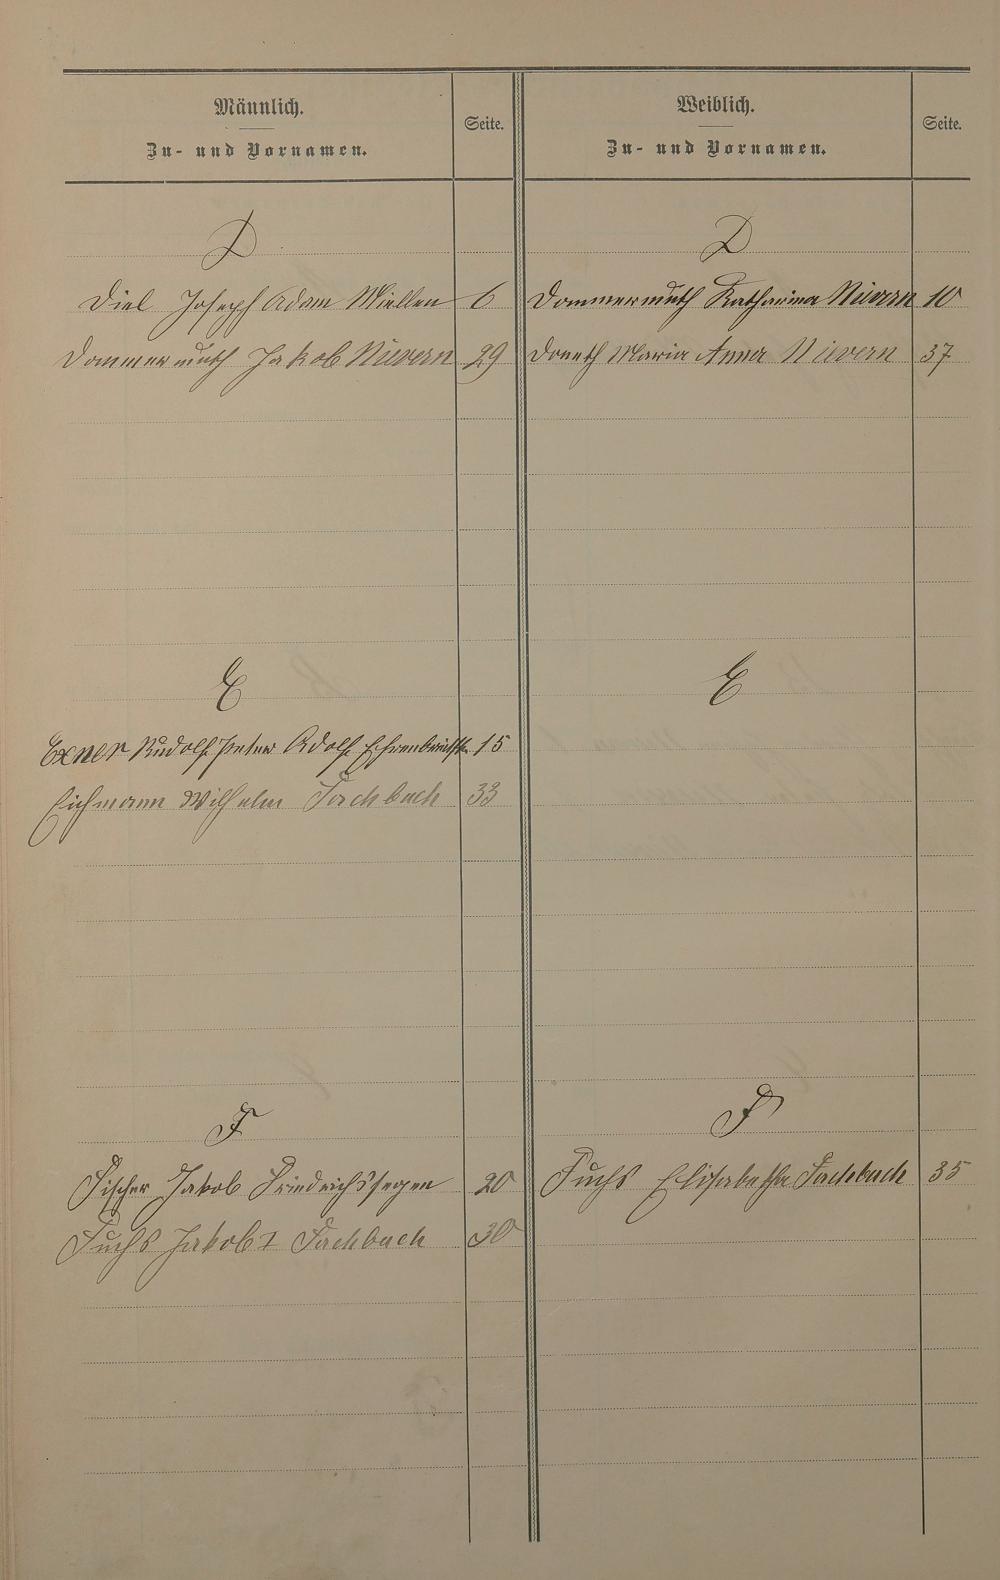 Männlich.
Zu- und Vornamen.
Seite.
Weiblich.
Zu- und Vornamen.
Seite.
D
D
Diel Joseph Adam Miellen 6
Dommermuth Katharina Nievern 10
Dommermuth Jakob Nievern 29
Maria Anna Nievern 37
E
E
Exner Rudolf Peter Adolf 15
Eichmann Wilhelm Fachbach 33
F
F
Fischer Jakob Friedrichssegen 20
Fuchs Elisabetha Fachbach 35
Fuchs Jakob I Fachbach 30